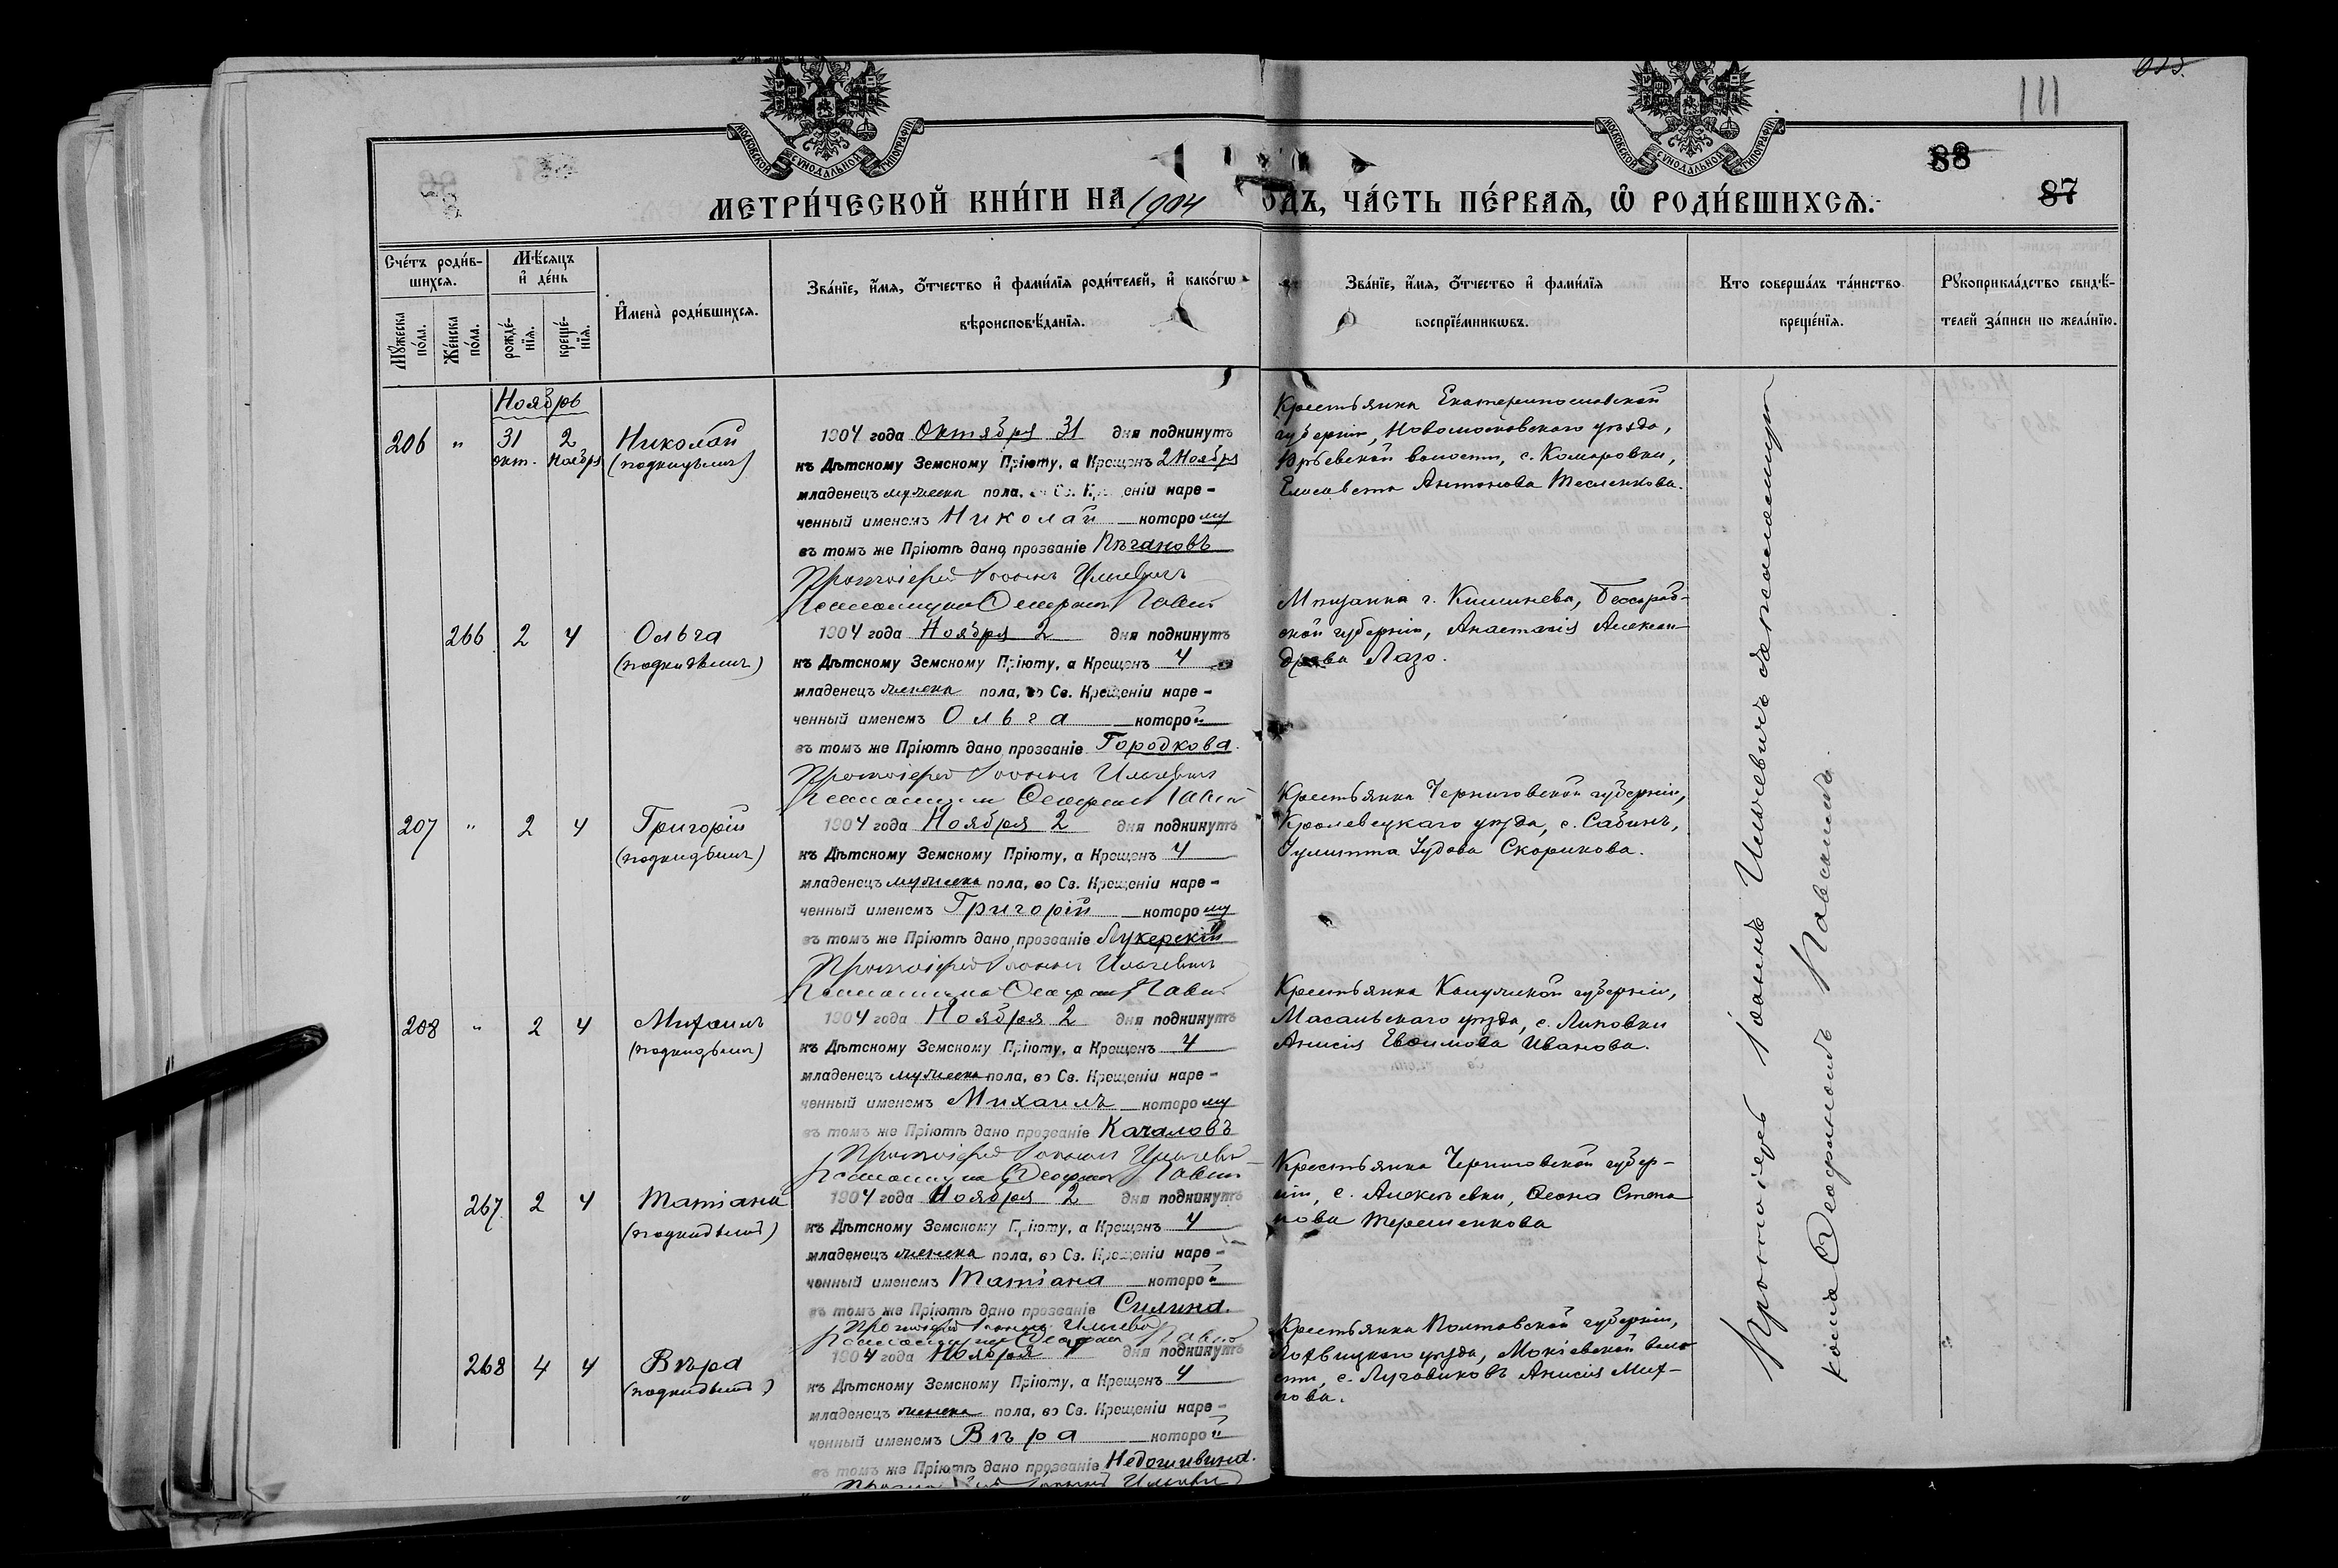 111
МОСКОВСКОЙ СУНОДАЛЬНОЙ ТИПОГРАФІИ
МОСКОВСКОЙ СУНОДАЛЬНОЙ ТИПОГРАФІИ
88
87
МЕТРИ́ЧЕСКОЙ КНИ́ГИ НА 1904 ОДЪ, ЧА́СТЬ ПЕ́РВАЯ, Ѽ РОДИ́ВШИХСЯ.
Сче́тъ роди́в-
шихся.
Мѣ́сяцъ
и҆ де́нь
Му́жеска по́ла.
Же́нска по́ла.
рожде́-
нїя.
креще́-
нїя.
И҆мена̀ роди́вшихся.
Зва́нїе, и҆́мя, ѻ҆́тчество и҆ фами́лїя роди́телей, и҆ како́гѡ
вѣроисповѣ́данїя.
Зва́нїе, и҆́мя, ѻ҆́тчество и҆ фами́лїя
воспрїе́мникѡвъ.
Кто соверша́лъ та́инство
креще́нїя.
Рꙋкоприкла́дство свидѣ́-
телей за́писи по жела́нїю.
Ноябрь
206 " 31 окт. 2 Ноября Николай
(подкидышъ)
1904 года Октября 31 дня подкинутъ
къ Дѣтскому Земскому Пріюту, а Крещенъ 2 Ноября
младенецъ мужеска пола, Св. Крещеніи наре-
ченный именемъ Николай которому
въ томъ же Пріютѣ дано прозваніе Пѣгановъ
Протоіерей Іоаннъ Ильчевичъ
Крестьянка Екатеринославской
губерніи, Новомосковскаго уѣзда,
волости, с. Комаровки,
Елисавета Антонова Тесленкова.
266 2 4 Ольга
(подкидышъ)
1904 года Ноября 2 дня подкинутъ
къ Дѣтскому Земскому Пріюту, а Крещенъ 4
младенецъ женска пола, во Св. Крещеніи наре-
ченный именемъ Ольга которой
въ томъ же Пріютѣ дано прозваніе Городкова.
Протоіерей Іоаннъ Ильчевичъ
Мѣщанка г. Кишинева, Бессараб-
ской губерніи, Анастасія Алексан-
дрова Лазо.
207 " 2 4 Григорій
(подкидышъ)
1904 года Ноября 2 дня подкинутъ
къ Дѣтскому Земскому Пріюту, а Крещенъ 4
младенецъ мужеска пола, во Св. Крещеніи наре-
ченный именемъ Григорій которому
въ томъ же Пріютѣ дано прозваніе
Протоіерей Іоаннъ Ильчевичъ
Крестьянка Черниговской губерніи,
Кролевецкаго уѣзда, с. Сабинъ,
Іулитта Іудова Скорикова.
208 " 2 4 Михаилъ
(подкидышъ)
1904 года Ноября 2 дня подкинутъ
къ Дѣтскому Земскому Пріюту, а Крещенъ 4
младенецъ мужеска пола, во Св. Крещеніи наре-
ченный именемъ Михаилъ которому
въ томъ же Пріютѣ дано прозваніе Качаловъ
Протоіерей Іоаннъ Ильчевичъ
Крестьянка Калужской губерніи,
Масальскаго уѣзда, с. Липовки
Анисія Евѳимова Иванова.
267 2 4 Татіана
(подкидышъ)
1904 года Ноября 2 дня подкинутъ
къ Дѣтскому Земскому Пріюту, а Крещенъ 4
младенецъ женска пола, во Св. Крещеніи наре-
ченный именемъ Татіана которой
въ томъ же Пріютѣ дано прозваніе Силина.
Протоіерей Іоаннъ Ильчевичъ
Крестьянка Черниговской губер-
ніи, с. Алексѣевки, Степа-
нова Терешенкова
268 4 4 Вѣра
(подкидышъ)
1904 года Ноября 4 дня подкинутъ
къ Дѣтскому Земскому Пріюту, а Крещенъ 4
младенецъ женска пола, во Св. Крещеніи наре-
ченный именемъ Вѣра которой
въ томъ же Пріютѣ дано прозваніе Недошивина.
Крестьянка Полтавской губерніи,
Лохвицкаго уѣзда, Мокіевской воло-
сти, с. Луговиковъ Анисія Мих-
нова.
Протоіерей Іоаннъ Ильчевичъ съ псаломщи-
комъ Павловичъ